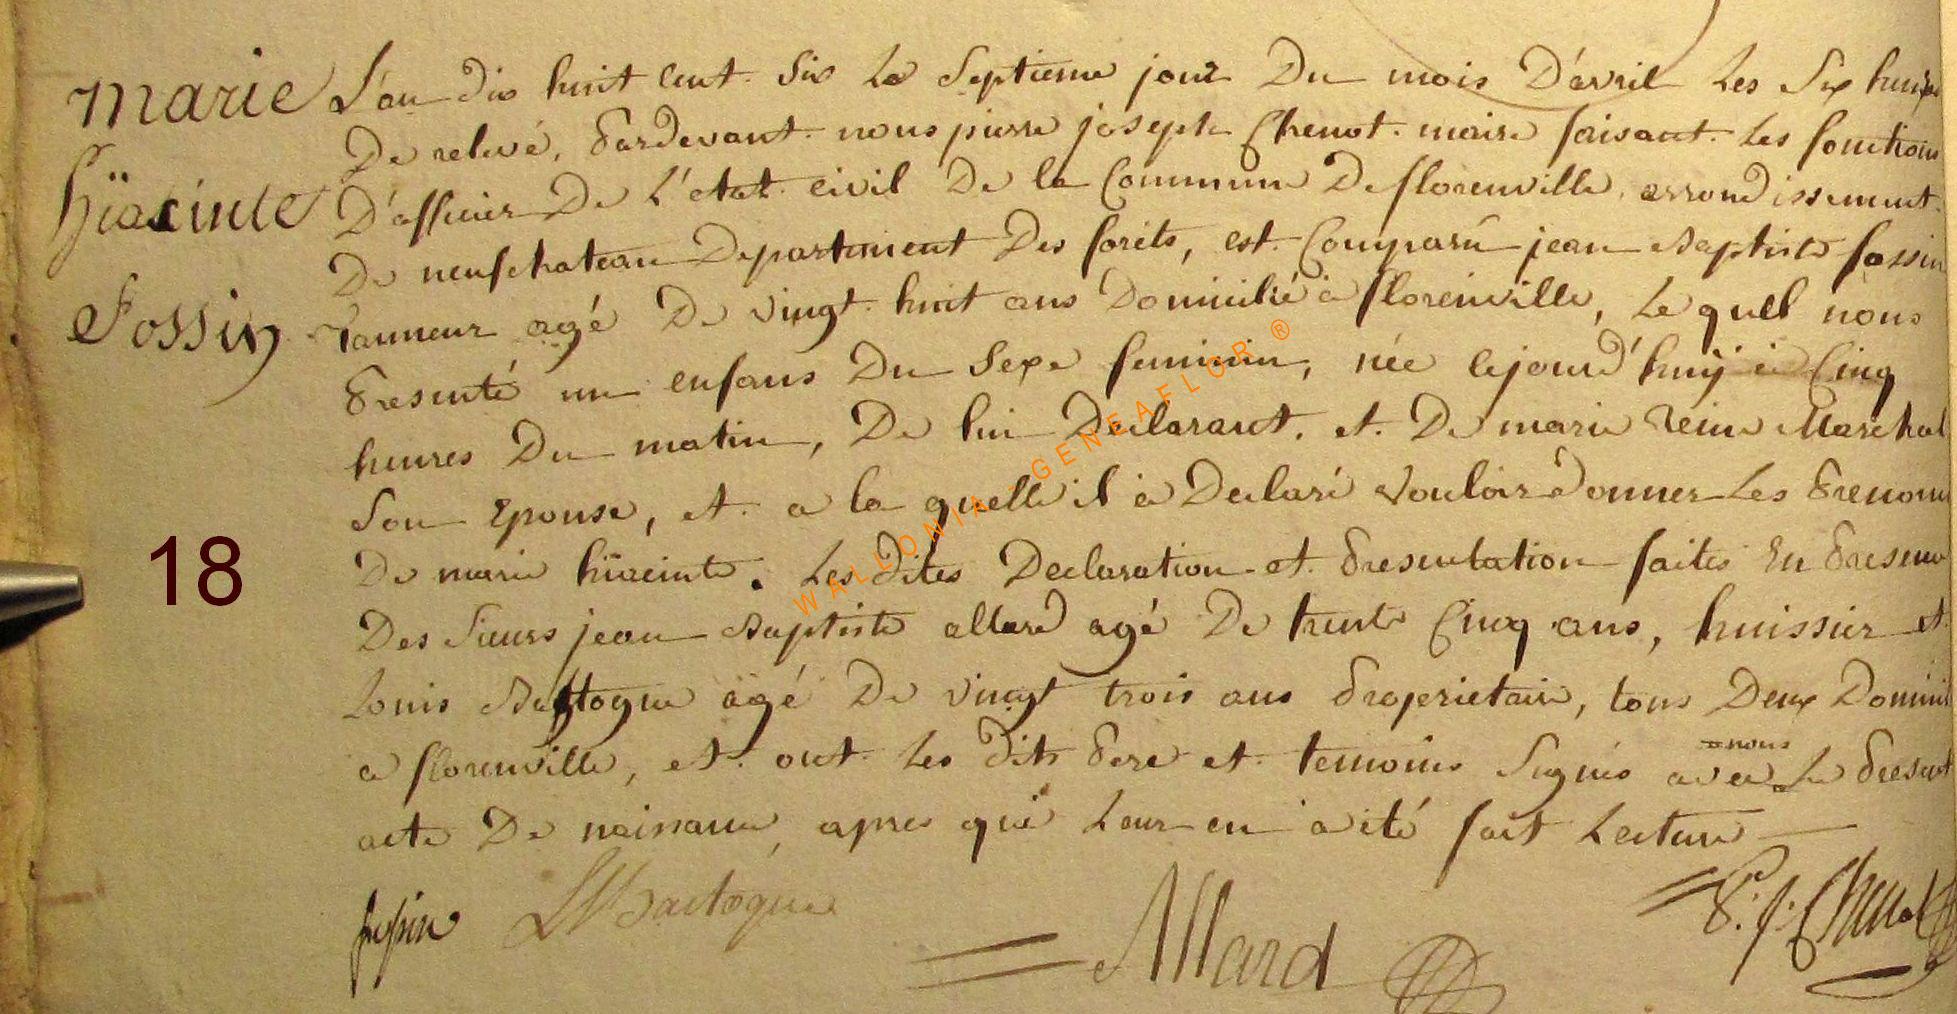 marie
hiacinte
Fossin
18
L'an dix huit cent six Le Septieme jour Du mois D'avril Les Six heures
De relevé, Pardevant nous pierre joseph Chenot maire faisant Les fonctions
D'afficier De L'etat civil De la Commune De florenville arrondissement
De neufchateau Departement Des forêts, est Comparû jean Baptiste fossin
Tanneur agé De vingt huit ans Domicilié a florenville, Le quel nous
Presenté un enfans Du Sexe feminin, née cejourd'huÿ à Cinq
heures Du matin, De lui Declarant, et De marie reine Marchal
Son Epouse, et a la quelle il a Declaré Vouloir Donner Les Prenoms
De marie hiacinte. Les Dites Declaration et Presentation faites En Presence
Des Sieurs jean Baptiste allard agé De trente Cinq ans, huissier et
Louis Bastogne agé De vingt trois ans Proprietaire, tous Deux Domicil
a florenville, et ont Les Dits Pere et temoins Signés avec nous Le Present
acte De naissance, apres que Leur en a eté fait Lecture
fossin LBastogne Allard P. J. Chenot
WALLONIA - GENEAFLOR ®